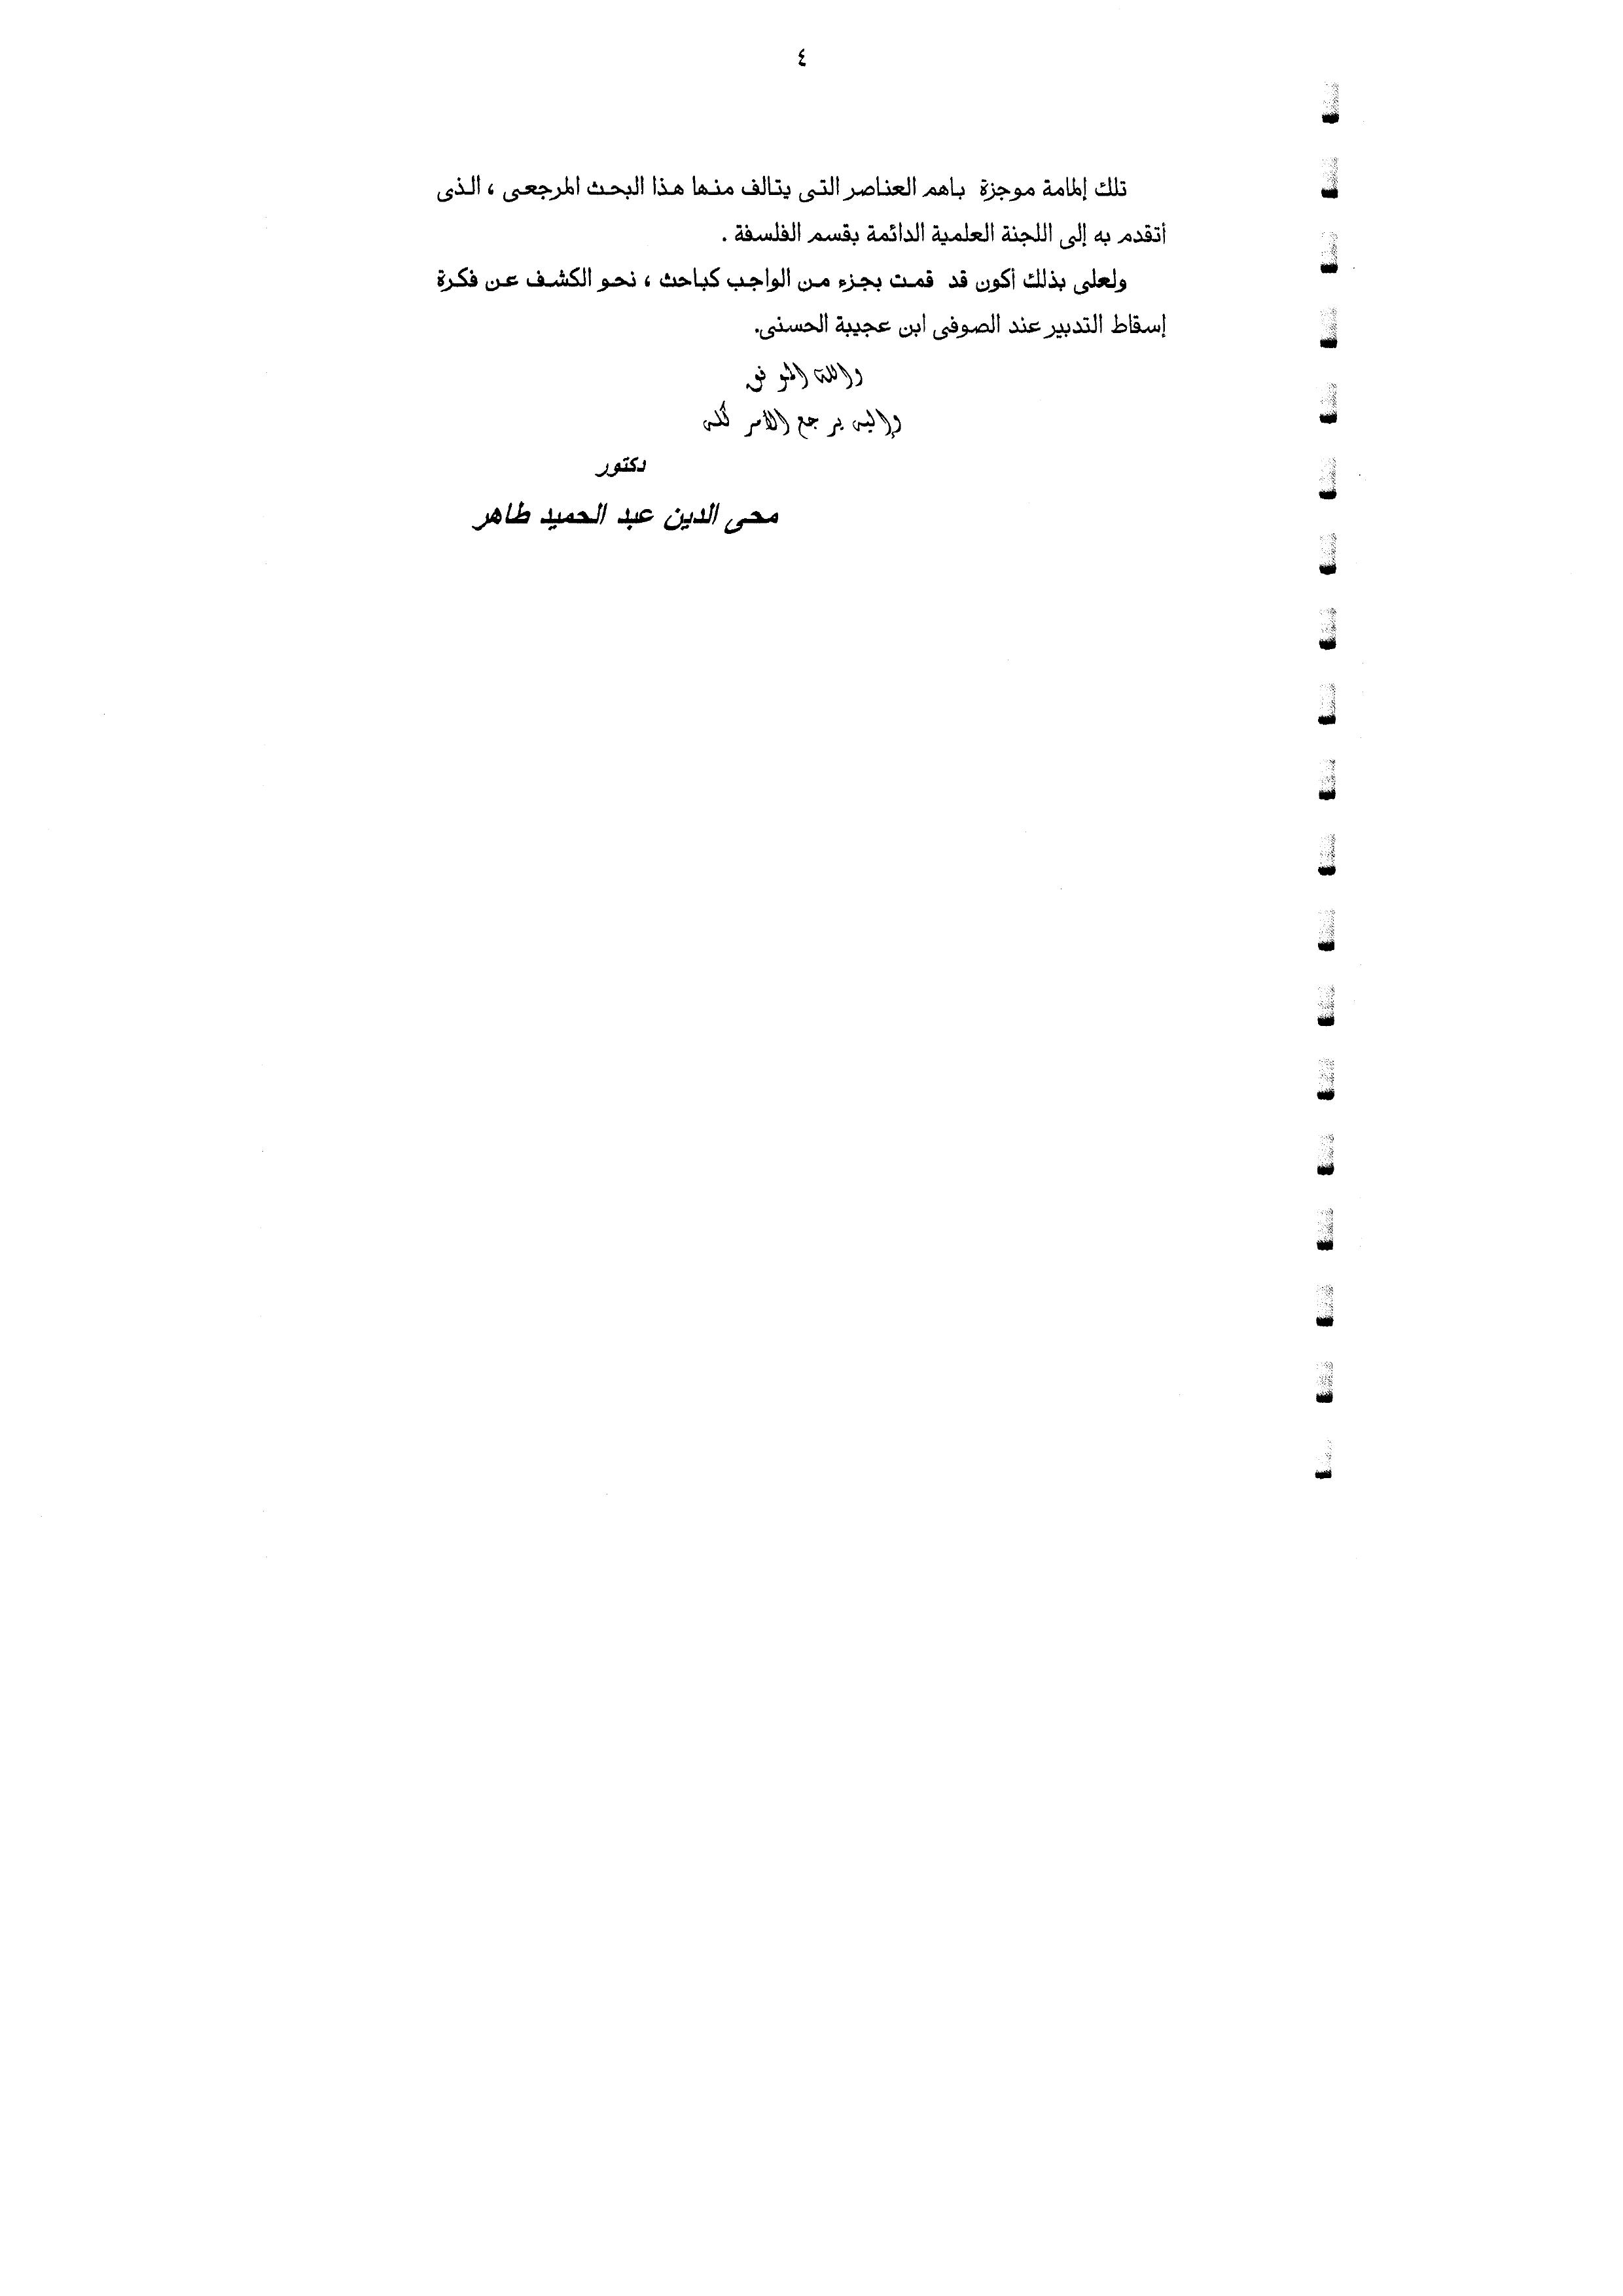 ٤
تلك إلمامة موجزة باهم العناصر التى يتالف منها هذا البحث المرجعى ، الذى
أتقدم به إلى اللجنة العلمية الدائمة بقسم الفلسفة .
ولعلى بذلك أكون قد قمت بجزء من الواجب كباحث ، نحو الكشف عن فكرة
إسقاط التدبير عند الصوفى ابن عجيبة الحسنى.
والله الموفق
وإليه يرجع الأمر كُله
دكتور
محى الدين عبد الحميد طاهر